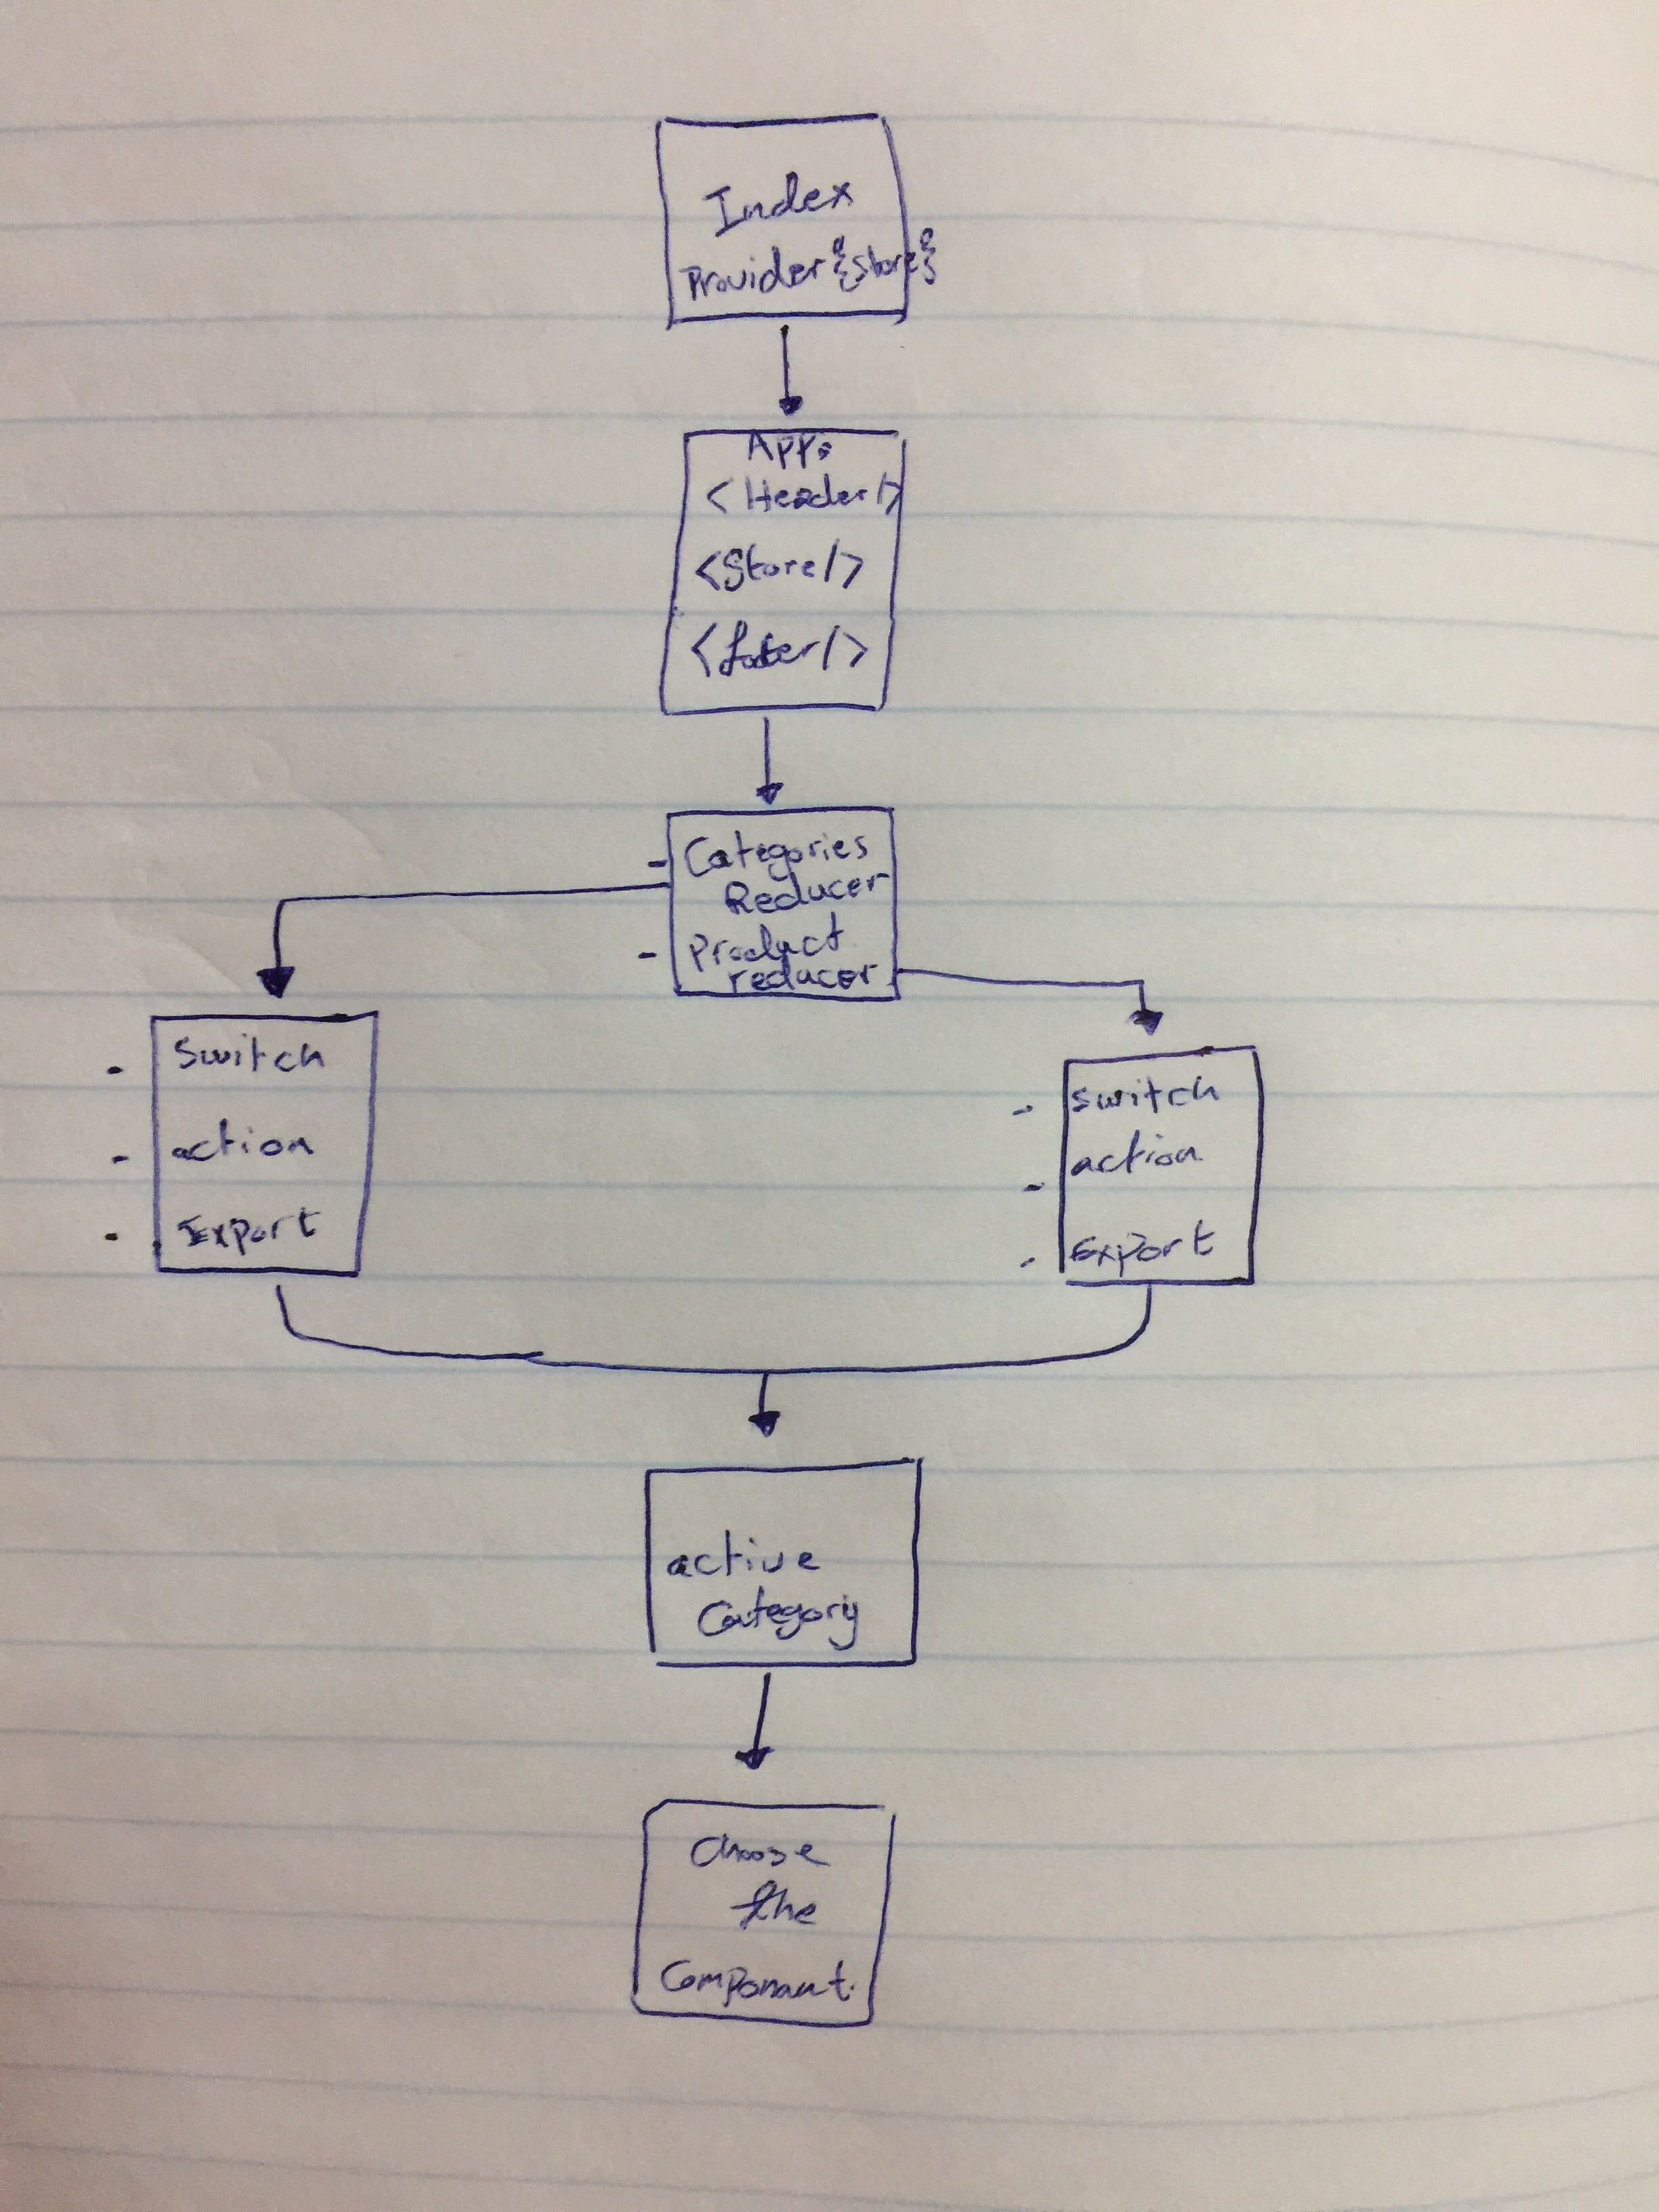 Index
Provider {store}
App:
<Header/>
<Store/>
<footer/>
- Categories
Reducer
- Product
reducer
- Switch
- action
- Export
- switch
- action
- Export
active
Category
Choose
the
Componant.